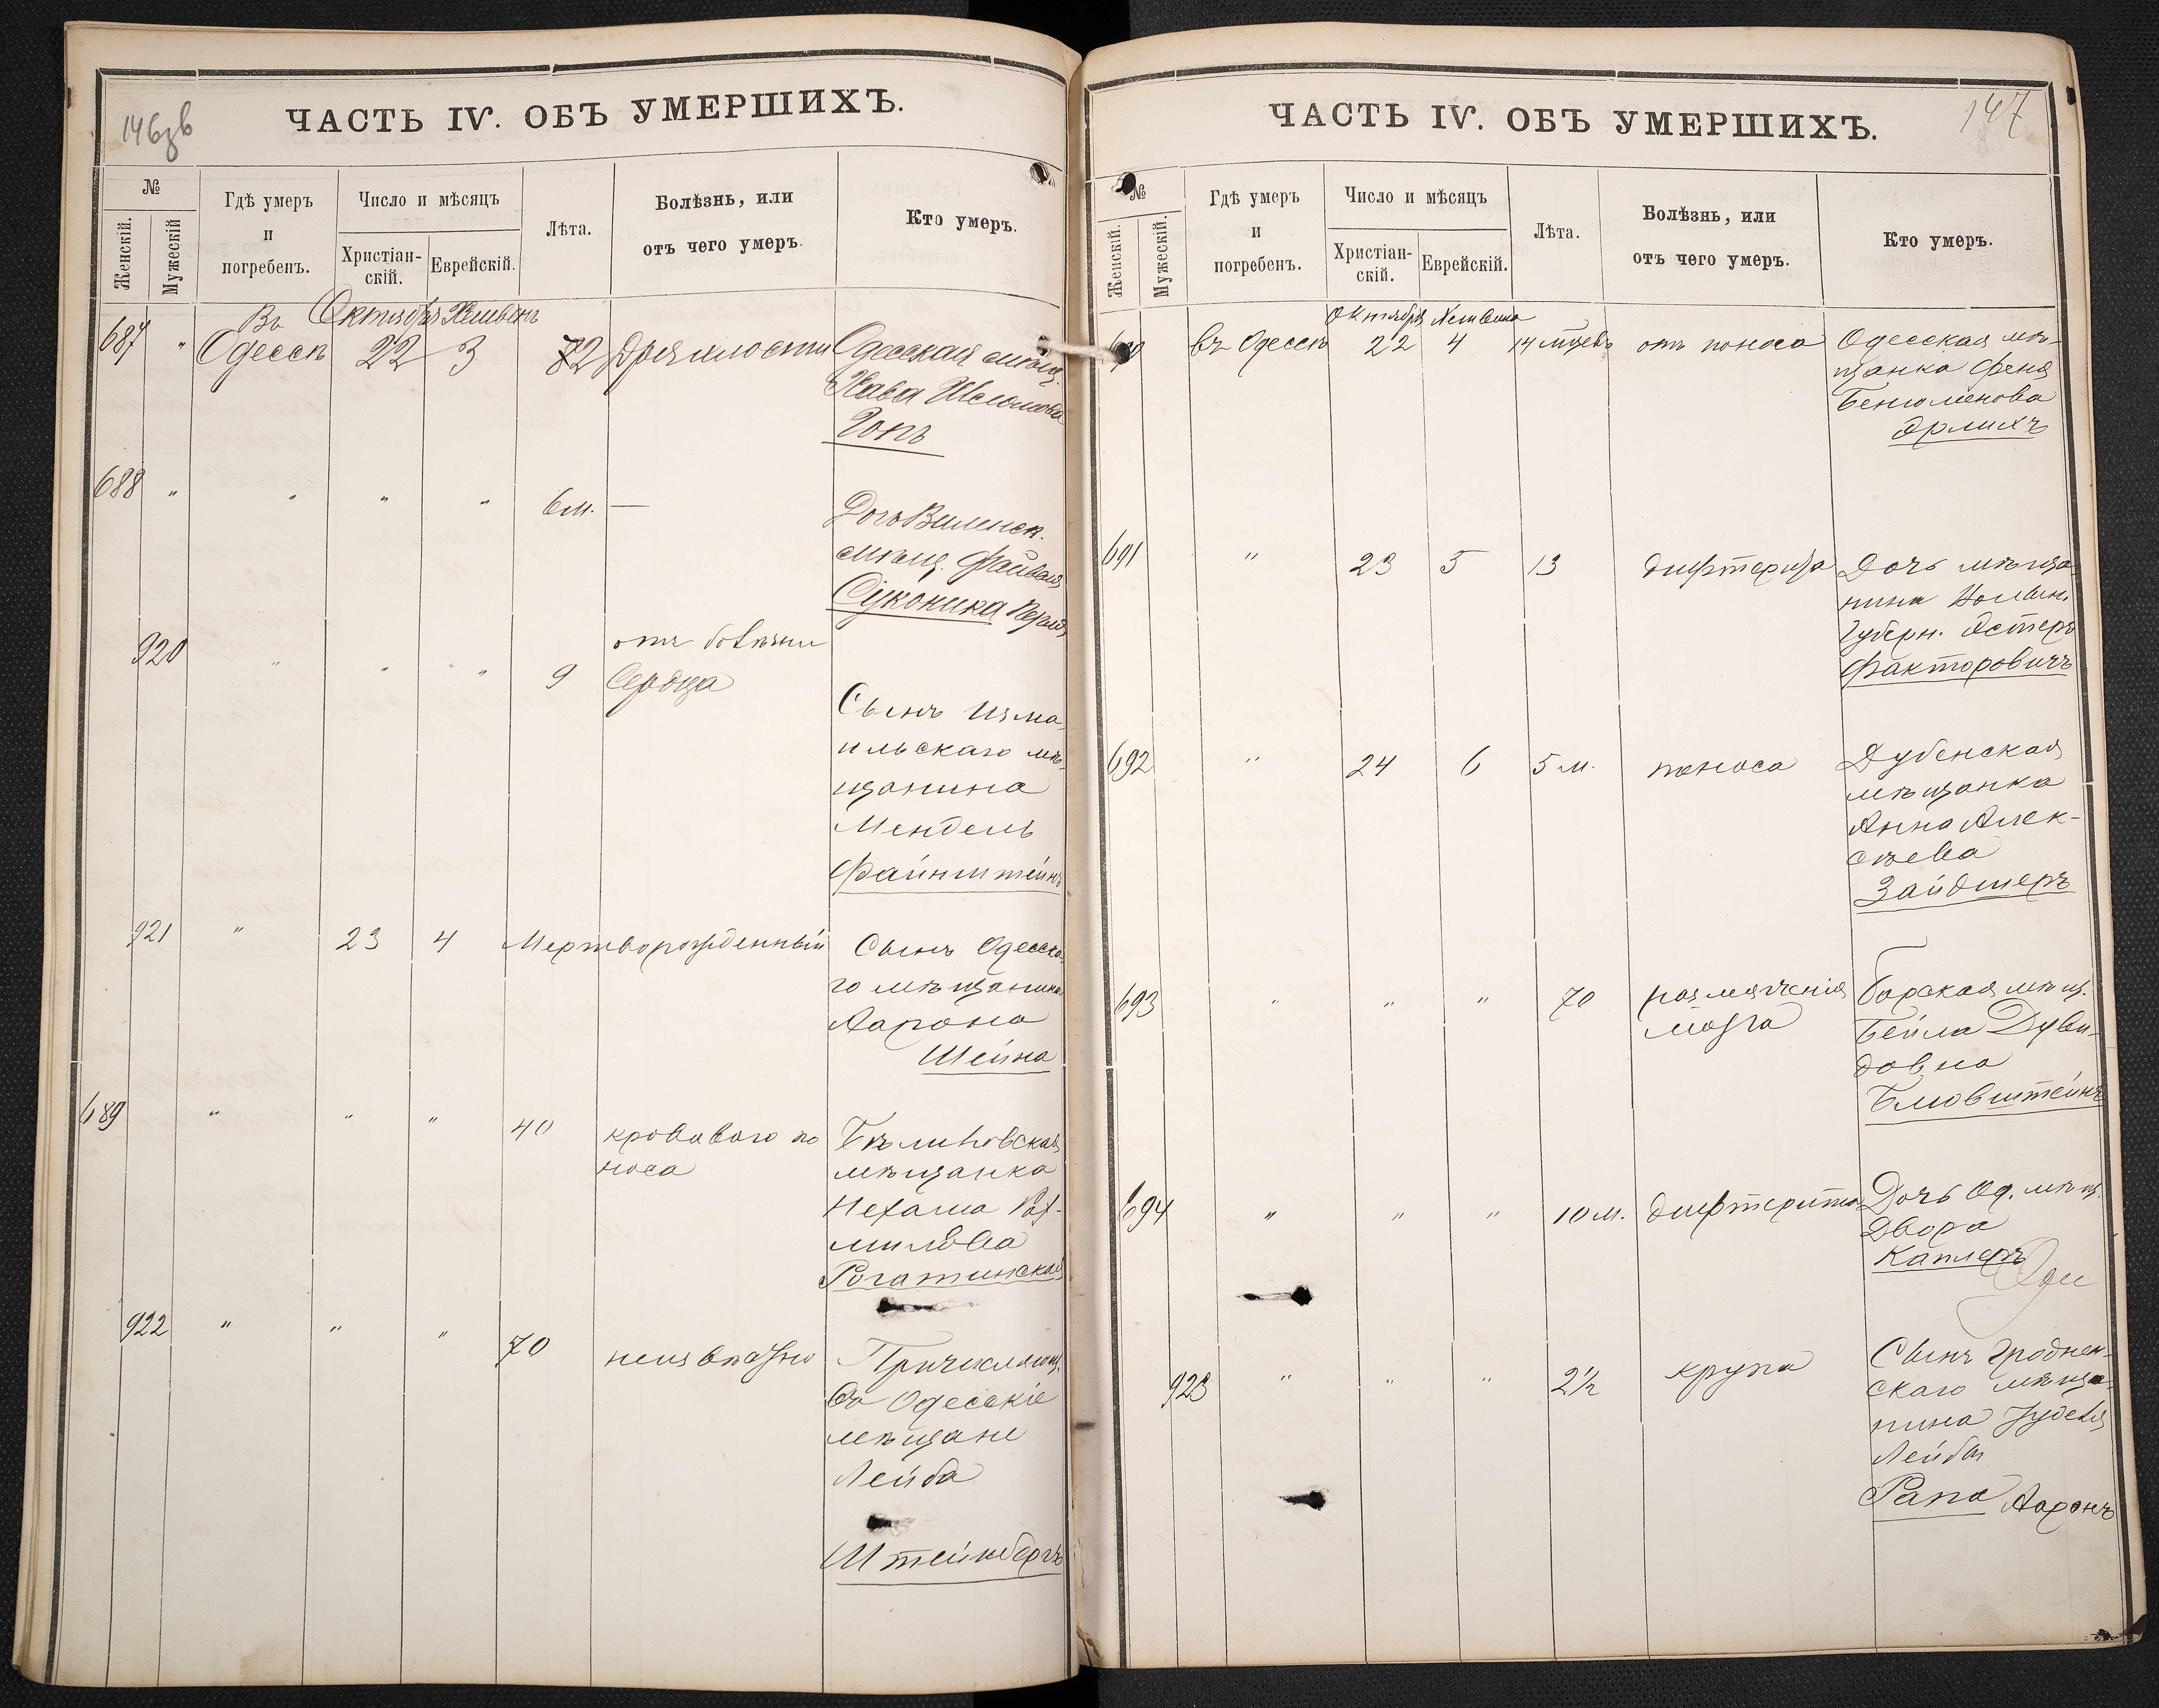 146 зв
ЧАСТЬ IV. ОБЪ УМЕРШИХЪ.
№
Женскій.
Мужескій
Гдѣ умеръ
и
погребенъ.
Число и мѣсяцъ
Христіан-
скій.
Еврейскій.
Лѣта.
Болѣзнь, или
отъ чего умеръ.
Кто умеръ.
Въ Октября Хешвонъ
687 " Одессѣ 22 3 82 Дряхлости Одесская мѣщ.
Хава
Гопъ
688 " " " " 6 м. — Дочь Виленск.
мѣщ. Файвеля
Суконика Перля
920 " " " 9 отъ болѣзни
Сердца
Сынъ Изма-
ильскаго мѣ-
щанина
Мендель
Файнштейнъ
921 " 23 4 Мертворожденный Сынъ Одесска-
го мѣщанина
Аарона
Шейна
689 " " " 40 кроваваго по
носа
мѣщанка
Нехама Рах-
милова
Рогатинская
922 " " " 70 неизвѣстно Причисляющ.
въ Одесскіе
мѣщане
Лейба
Штейнбергъ
147
ЧАСТЬ IV. ОБЪ УМЕРШИХЪ.
№
Женскій.
Мужескій.
Гдѣ умеръ
и
погребенъ.
Число и мѣсяцъ
Христіан-
скій.
Еврейскій.
Лѣта.
Болѣзнь, или
отъ чего умеръ.
Кто умеръ.
Октября Хешвона
въ Одессѣ 22 4 14 мѣсяцъ отъ поноса Одесская мѣ-
щанка Феня
Бенюменова
Эрлихъ
691 " 23 5 13 дифтерита Дочь мѣща
нина Волын.
Губерн. Эстеръ
Факторовичъ
692 " 24 6 5 м. поноса Дубенская
мѣщанка
Анна Алек-
сѣева
Зайдшеръ
693 " " " 70 размягченія
мозга
Барская мѣщ.
Бейла Дуви-
довна
Бловштейнъ
694 " " " 10 м. дифтерита Дочь Од. мѣщ.
Двора
Каплеръ
923 " " " 2½ крупа Сынъ Гроднен-
скаго мѣща-
нина Зуделя
Лейбы
Рапа Ааронъ